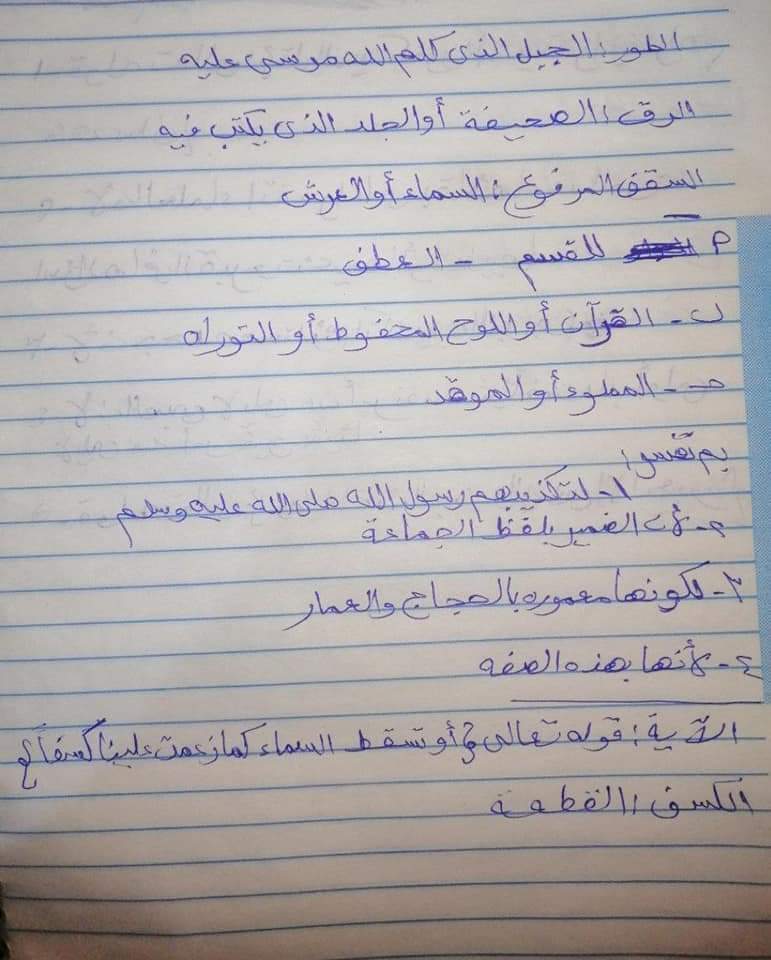 الطور : الجبل الذى كلم الله موسى عليه
الرق : الصحيفة أو الجلد الذى يكتب فيه
السقف المرفوع : السماء أو العرش
للقسم - العطف
ب - القرآن أو اللوح المحفوظ أو التوراه
ح - المملوء أو الموقد
بم تفسر :
١- لتكذيبهم رسول الله صلى الله عليه وسلم
٢- لأن الضمير بلفظ الجماعة
٣- لكونها معموره بالحجاج والعمار
٤- لأنها بهذه الصفه
الآية : قوله تعالى { أو تسقط السماء كما زعمت علينا كسفاً }
الكسف : القطعة